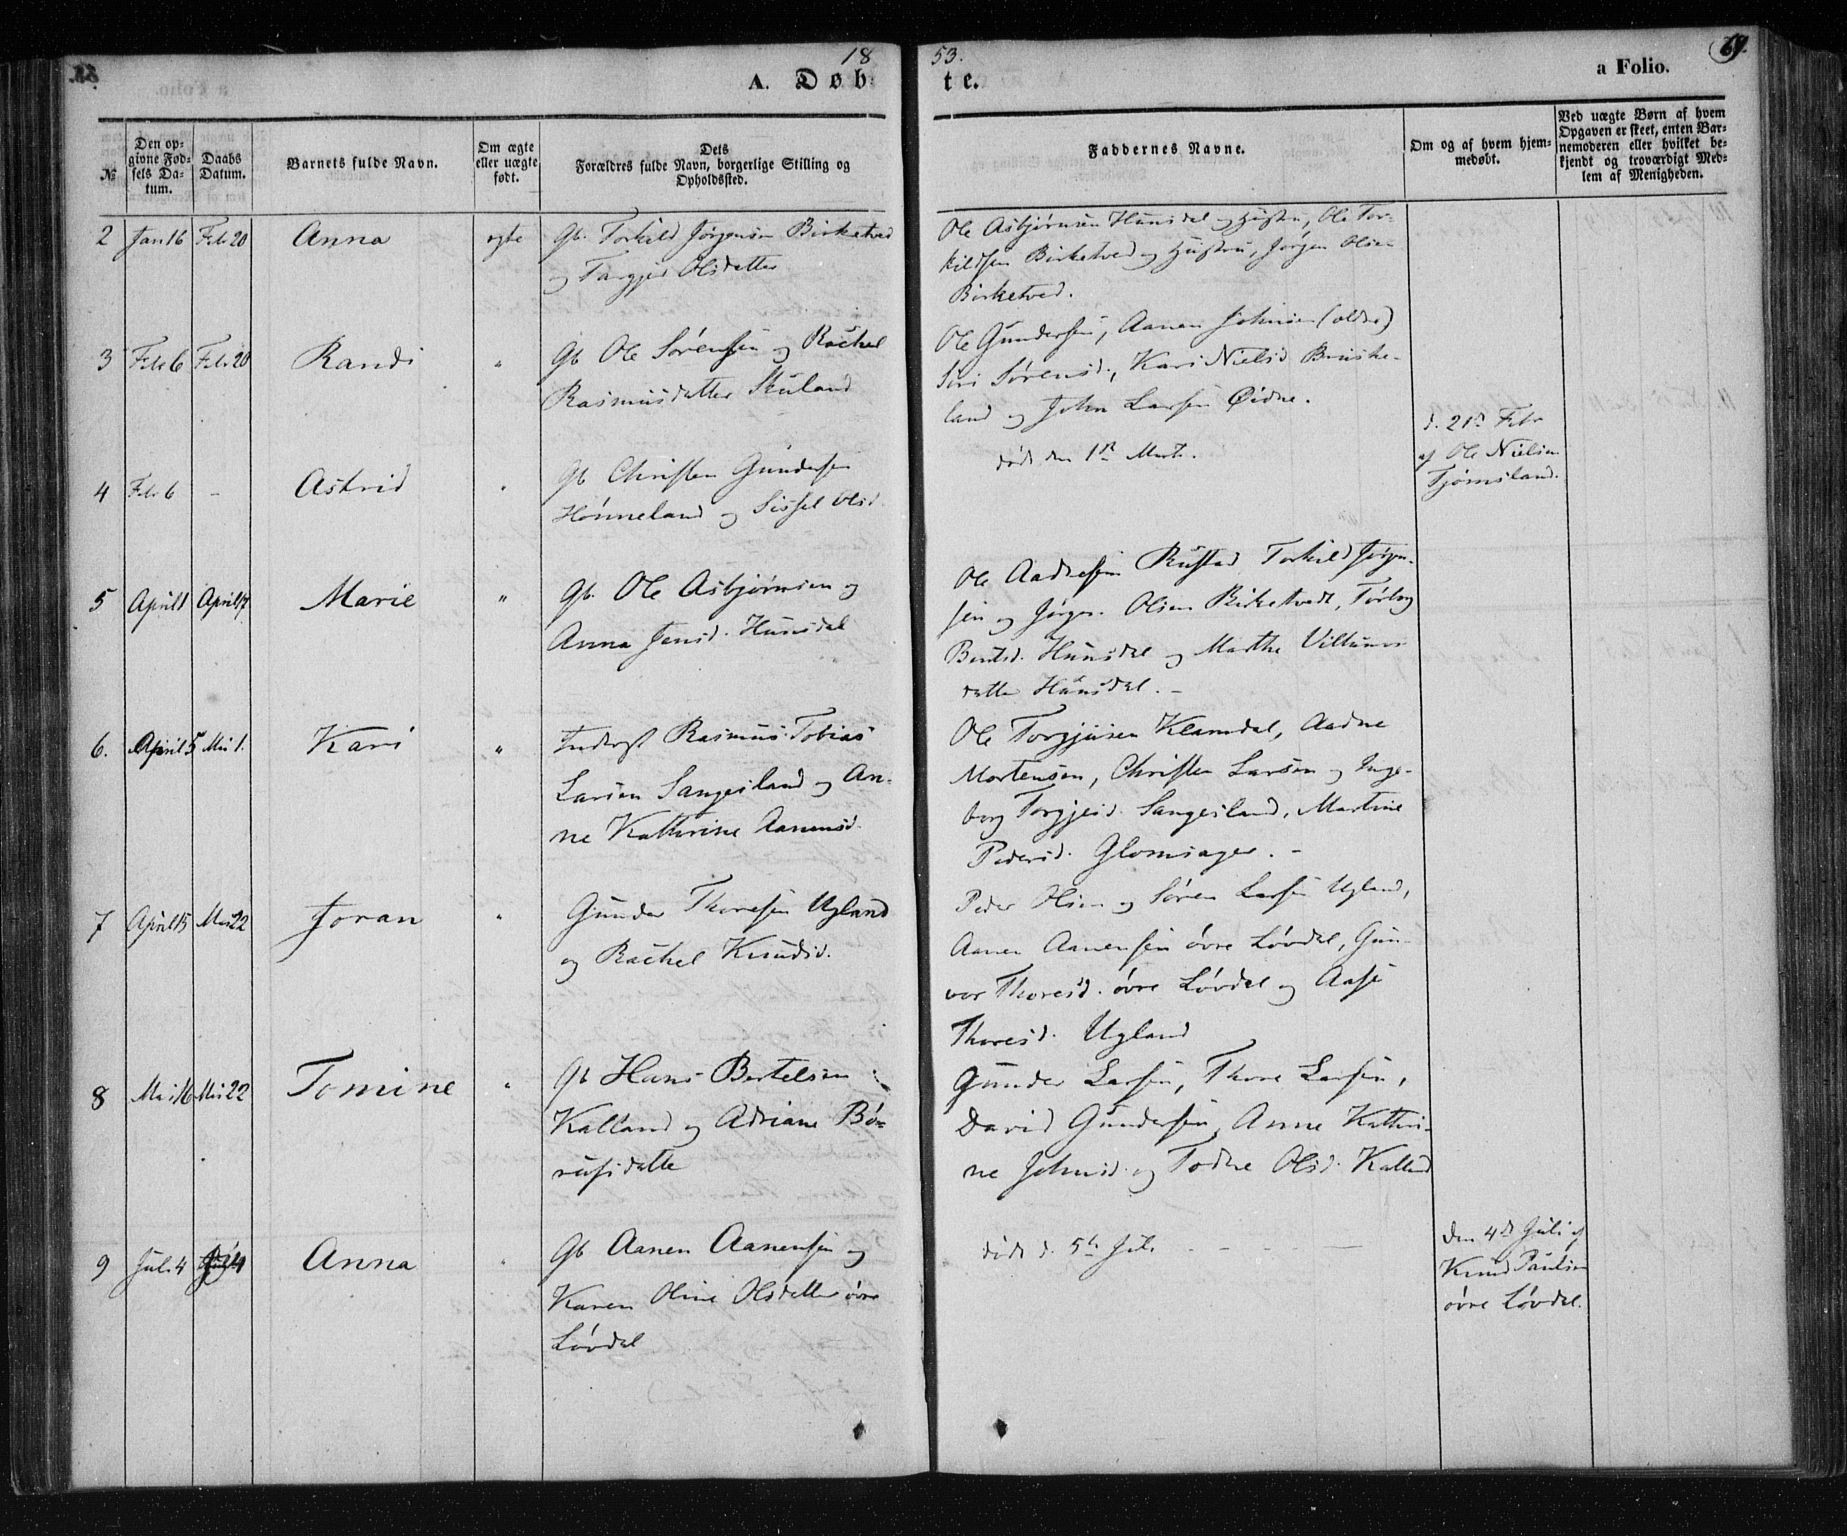 1853.
A. Døbte.
a Folio.
69.
№
Den opgivne Fødsels Datum.
Daabs Datum.
Barnets fulde Navn.
Om ægte eller uægte født.
Dets Forældres fulde Navn, borgerlige Stilling og Opholdssted.
Faddernes Navne.
Om og af hvem hjemmedøbt.
Ved uægte Børn af hvem Opgaven er skeet, enten Barnemoderen eller hvilket bekjendt og troværdigt Medlem af Menigheden.
2 Jan 16 Febr 20 Anna egte Gb. Torkild Jørgensen Birketved
og Targjer Olsdatter
Ole Asbjørnsen Hunsdal og Hustru, Ole Tor-
kildsen Birketved og Hustru, Jørgen Olsen
Birketved.
3 Febr 6 Febr 20 Randi " Gb Ole Sørensen og Rachel
Rasmusdatter Skuland
Ole Gundersen, Aanen Johnsen (ældre)
Siri Sørensd., Kari Nielsd Bruske-
land og John Larsen Øidne.
4 Febr 6 - Astrid " Gb Christen Gundersen
Hønneland og Sissel Olsd.
død den 1st Marts.
d. 21d Febr
af Ole Nielsen
Tjømsland.
5 April 1 April 17 Marie " Gb. Ole Asbjørnsen og
Anna Jensd. Hunsdal
Ole Aadnesen Rustad Torkild Jørgen-
sen og Jørgen Olsen Birketvedt, Torborg
Bentsd. Hunsdal og Marthe Villums
datter Hunsdal. -
6. April 5 Mai 1. Kari " Inderst Rasmus Tobias
Larsen Sangesland og An-
ne Kathrine Aanensd.
Ole Torgjusen Klamdal, Aadne
Mortensen, Christen Larsen og Inge-
borg Torgjesd. Sangesland, Martine
Pedersd. Glomsager. -
7 April 15 Mai 22 Joran " Gunder Thoresen Ugland
og Rachel Knudsd.
Peder Olsen og Søren Larsen Ugland,
Aanen Aanensen øvre Løvdal, Gun-
vor Thoresd. øvre Løvdal og Aase
Thoresd. Ugland
8 Mai 16 Mai 22 Tomine " Gb Hans Bertelsen
Kalland og Adriane Bø-
rufsdatte
Gunder Larsen, Thore Larsen,
David Gundersen, Anne Kathri-
ne Johnsd. og Todne Olsd. Kalland
9 Juli 4 Juli 4 Anna " Gb Aanen Aanensen og
Karen Oline Olsdatter øvre
Løvdal
død d. 5te Juli - - - -
den 4d Juli af
Knud Paulsen
øvre Løvdal.